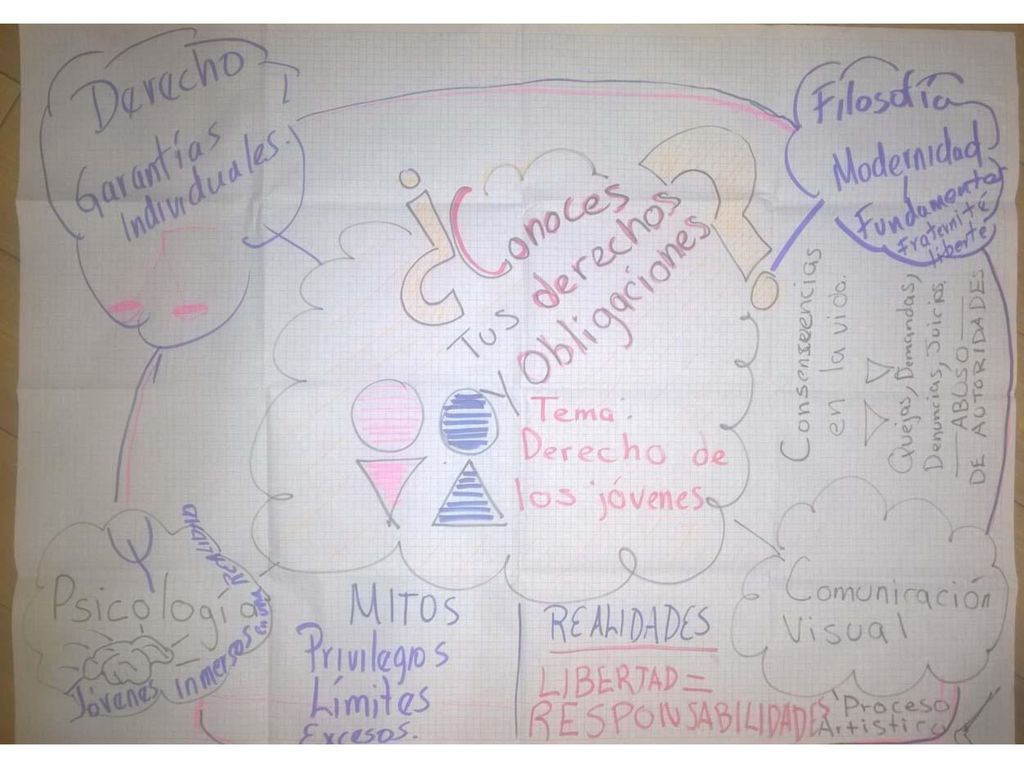 Derecho
Garantías
Individuales.
¿Conoces
Tus derechos
y Obligaciones?
Tema:
Derecho de
los jóvenes
Filosofía
Modernidad
Fundamental
Fraternité
Liberté
en la vida.
Quejas, Demandas,
Denuncias, Juicios,
ABUSO
DE AUTORIDADES
Psicología
Jóvenes inmersos en una REALIDAD
MITOS
Privilegios
Límites
Excesos.
REALIDADES
LIBERTAD =
RESPONSABILIDADES
Comunicación
Visual
Proceso
Artístico